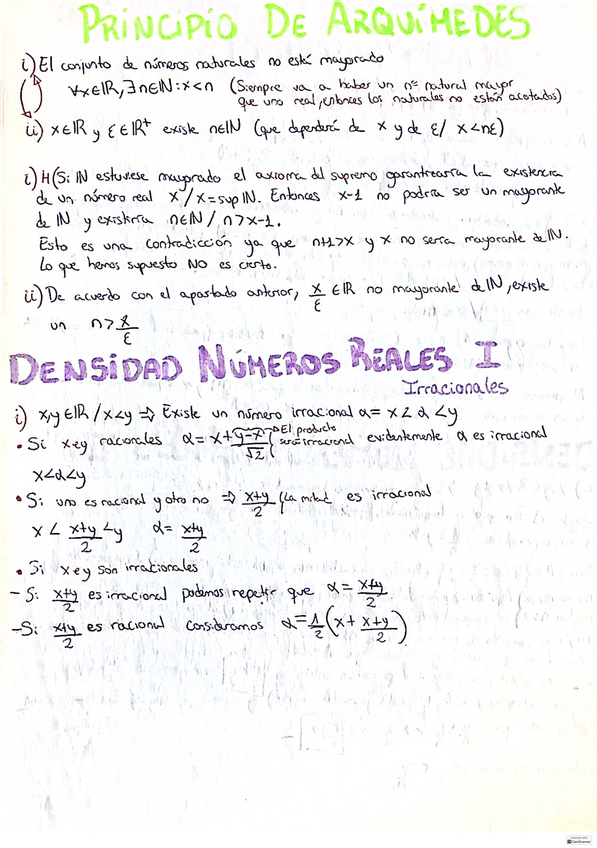 PRINCIPIO DE ARQUÍMEDES
i) El conjunto de números naturales no está mayorado
∀x∈IR, ∃n∈IN : x<n (Siempre va a haber un nº natural mayor
que uno real, entonces los naturales no están acotados)
ii) x∈IR y ε∈IR⁺ existe n∈IN (que dependerá de x y de ε / x<nε)
i) H(Si IN estuviese mayorado el axioma del supremo garantizaría la existencia
de un número real x / x=sup IN. Entonces x-1 no podría ser un mayorante
de IN y existiría n∈IN / n>x-1.
Esto es una contradicción ya que n+1>x y x no sería mayorante de IN.
Lo que hemos supuesto NO es cierto.
ii) De acuerdo con el apartado anterior, x/ε ∈IR no mayorante de IN, existe
un n> x/ε
DENSIDAD NÚMEROS REALES I
Irracionales
i) x,y∈IR / x<y ⇒ Existe un número irracional α= x<α<y
• Si x e y racionales α = x + (y-x)/√2 (El producto será irracional evidentemente α es irracional
x<α<y
• Si uno es racional y otro no ⇒ (x+y)/2 (la mitad es irracional
x < (x+y)/2 < y α = (x+y)/2
• Si x e y son irracionales
- Si (x+y)/2 es irracional podemos repetir que α = (x+y)/2
- Si (x+y)/2 es racional consideramos α = 1/2 (x + (x+y)/2)
CamScanner